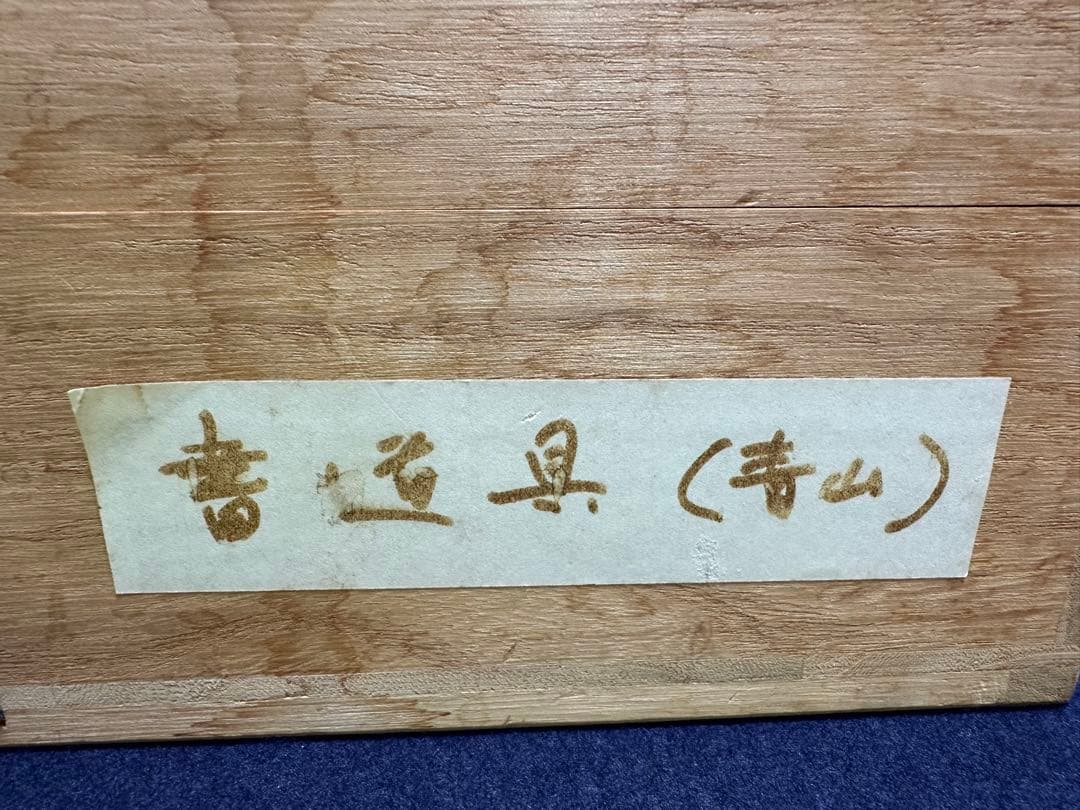 書道具(山)